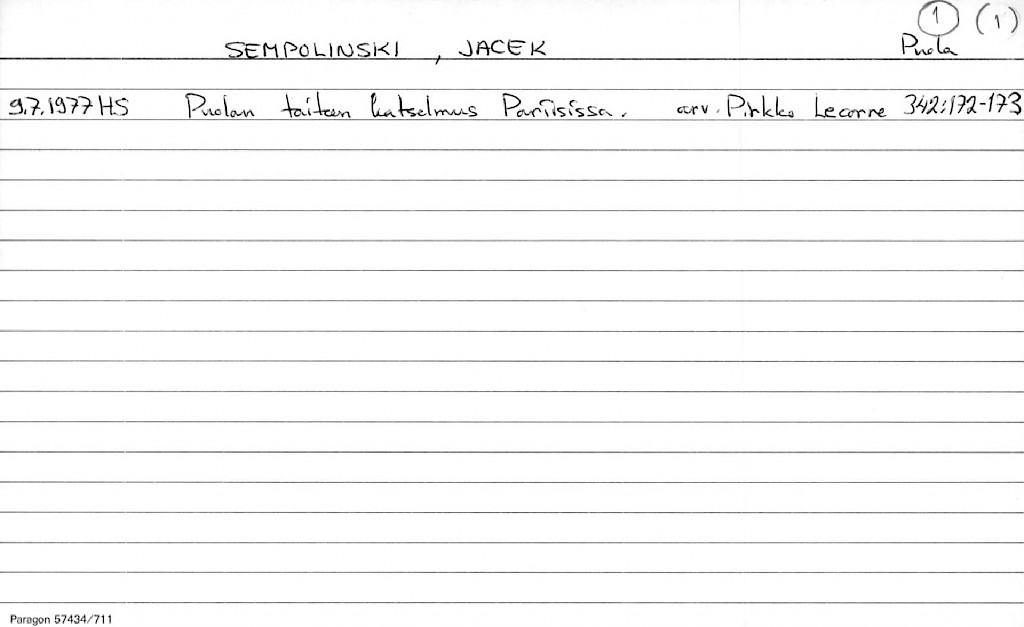 1 (1)
SEMPOLINSKI, JACEK Puola
9.7.1977 HS Puolan taiteen katselmus Pariisissa. arv. Pirkko Lecorre 342:172-173
Paragon 57434/711